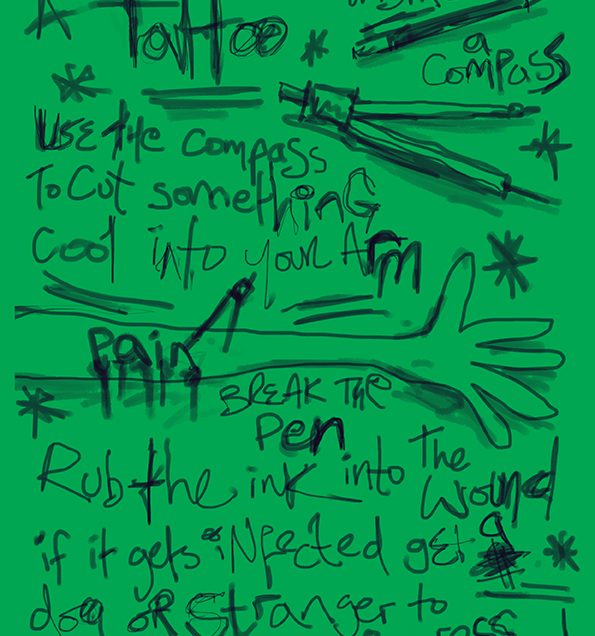 A Tattoo
a
Compass
Use the compass
To Cut something
Cool into your Arm
pain
Break the
Pen
Rub the ink into the
wound
if it gets infected get a
dog or Stranger to